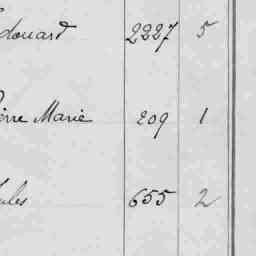 douard 2227 5
ierre Marie 209 1
ules 655 2